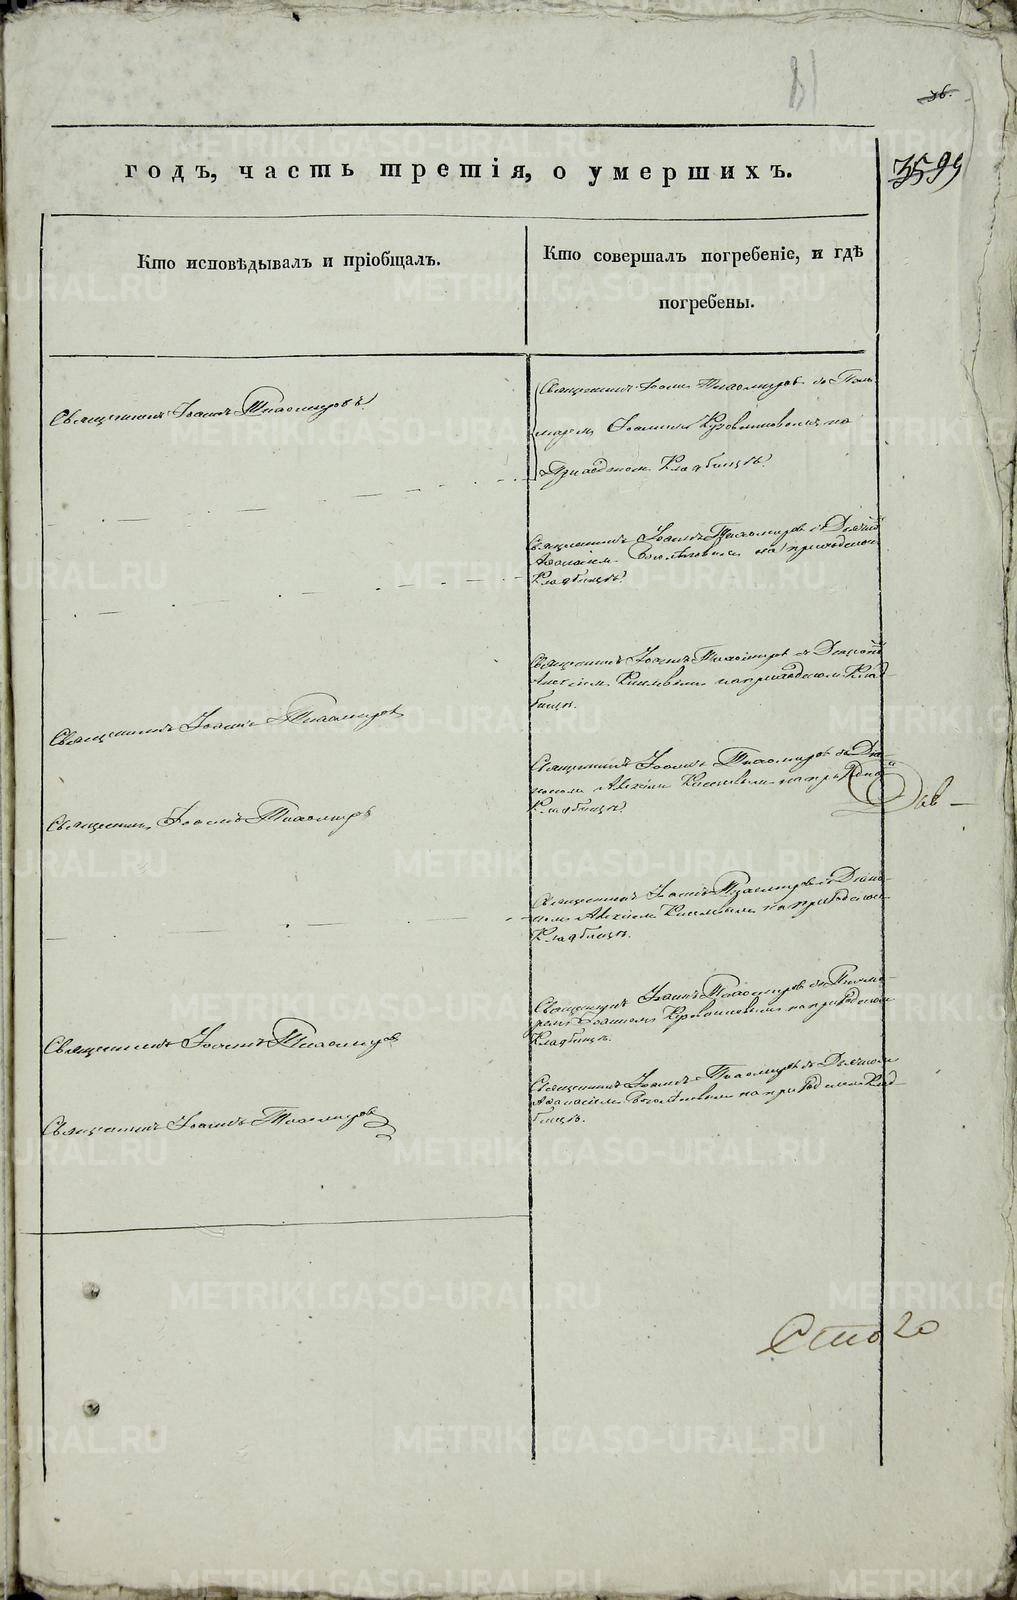 36.
35 99
годъ, часть третія, о умершихъ.
Кто исповѣдывалъ и пріобщалъ.
Кто совершалъ погребеніе, и гдѣ
погребены.
Священникъ Іоаннъ Тихомировъ
Священникъ Іоаннъ Тихомировъ съ Поно-
маремъ Іоанномъ на
Приходскомъ Кладбищѣ.
Священникъ Іоаннъ Тихомировъ съ Дьячкомъ
Аѳанасіемъ на приходскомъ
Кладбищѣ.
Священникъ Іоаннъ Тихомировъ съ Діакономъ
Алексіемъ на приходскомъ Клад-
бищѣ.
Священникъ Іоаннъ Тихомировъ
Священникъ Іоаннъ Тихомировъ съ Діа-
кономъ Алексіемъ на приходскомъ
Кладбищѣ.
Священникъ Іоаннъ Тихомировъ
Священникъ Іоаннъ Тихомировъ съ Діако-
номъ Алексіемъ на приходскомъ
Кладбищѣ.
Священникъ Іоаннъ Тихомировъ съ Поно-
маремъ Іоанномъ на приходскомъ
Кладбищѣ.
Священникъ Іоаннъ Тихомировъ
Священникъ Іоаннъ Тихомировъ съ Дьячкомъ
Аѳанасіемъ на приходскомъ Клад-
бищѣ.
Священникъ Іоаннъ Тихомировъ
METRIKI.GASO-URAL.RU